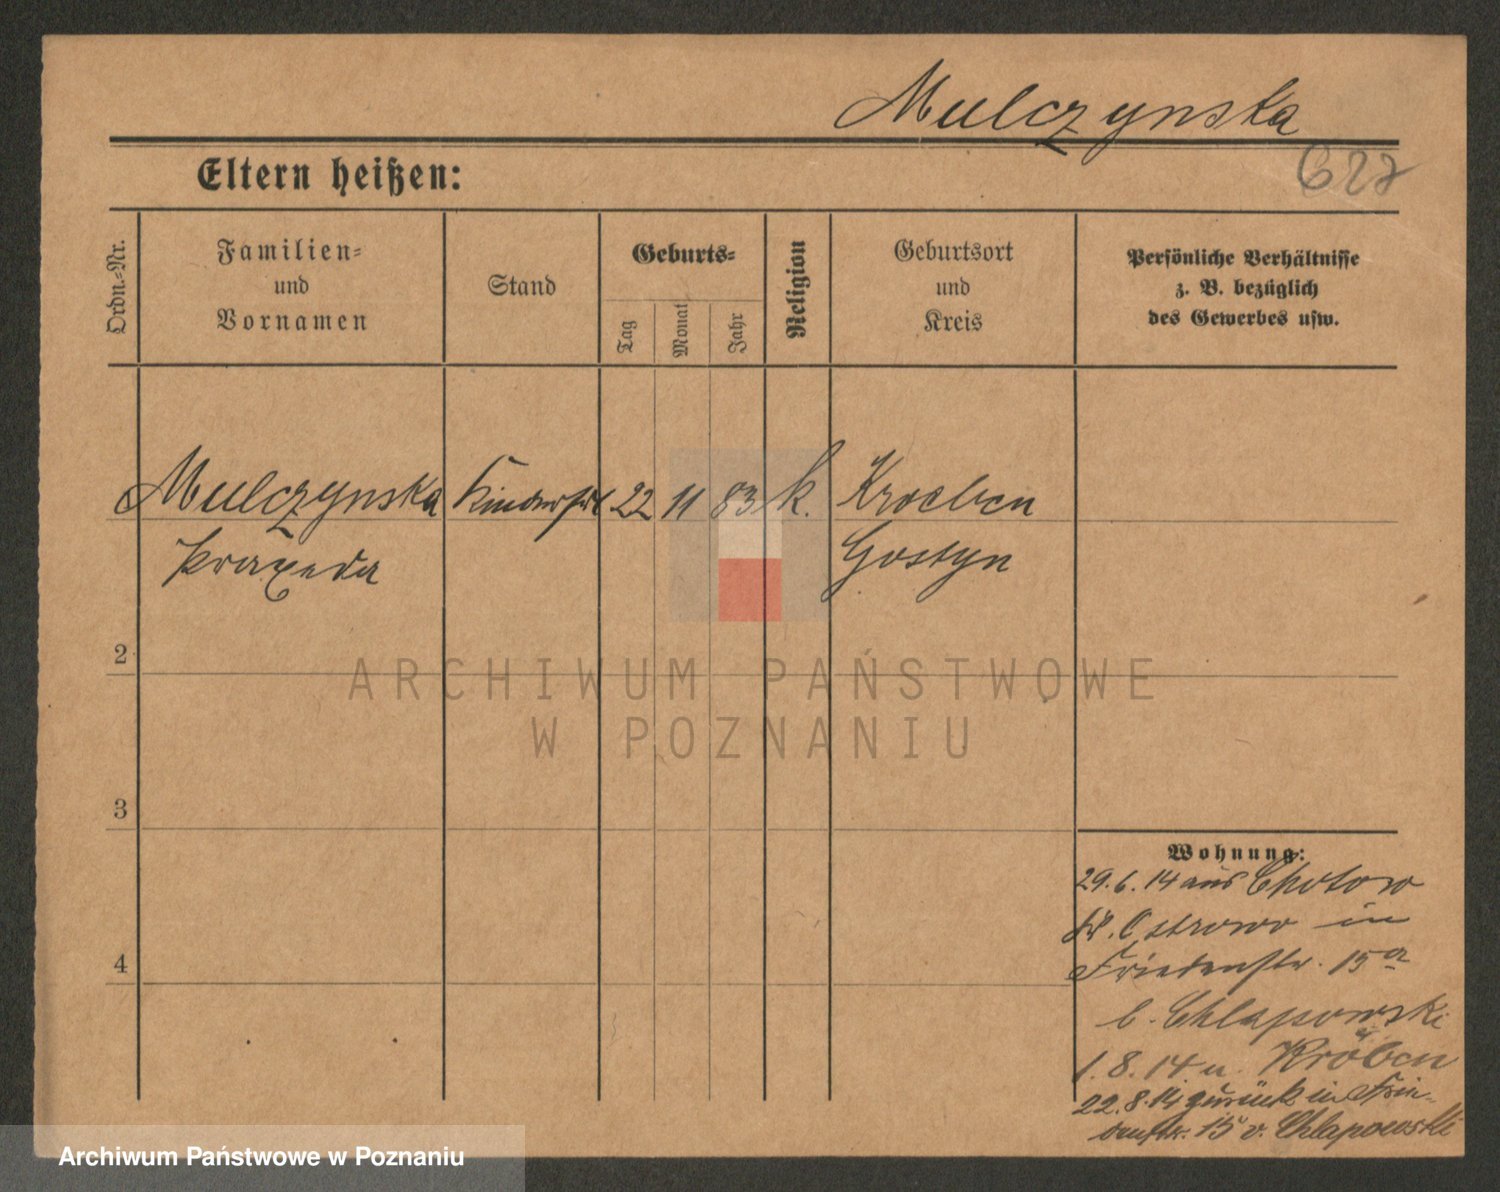 Mulczynska
627
Eltern heißen:
Ordn.-Nr.
Familien-
und
Vornamen
Stand
Geburts-
Tag
Monat
Jahr
Religion
Geburtsort
und
Kreis
Persönliche Verhältnisse
z. B. bezüglich
des Gewerbes usw.
Mulczynska Kinderfrl 22 11 83 k. Kroeben
Praxeda Gostyn
2
ARCHIWUM PAŃSTWOWE
W POZNANIU
3
Wohnung:
29.6.14 aus Chotow
Kr. Ostrowo in
4
Friedenstr. 15a
b. Chlapowski
1.8.14 n. Kröben
22.8.14 zurück in Frie-
denstr. 15 v. Chlapowski
Archiwum Państwowe w Poznaniu